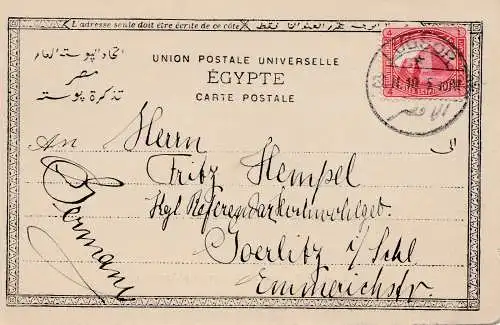 L'adresse seule doit être écrite de ce côté
اتحاد البوستة العام
مصر
تذكرة بوستة
UNION POSTALE UNIVERSELLE
ÉGYPTE
CARTE POSTALE
LUXOR
الاقصر
الى
An Herrn
Fritz Hempel
Kgl. Referendar Hochwohlgeb.
Goerlitz i/Schl
Emmerichstr.
Germany